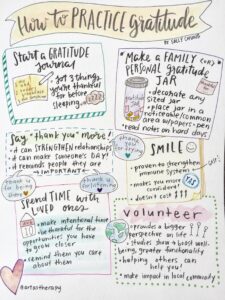 How to PRACTICE Gratitude
BY SALLY CHUNG
Start a GRATITUDE journal
jot 3 things
you're thankful
for before
sleeping...
Make a FAMILY (OR)
PERSONAL gratitude
JAR
• decorate any
sized jar
• place jar in a
noticeable/common
area w/paper + pen
• read notes on hard days
Say "thank you" more!
• it can STRENGTHEN relationships
• it can make someone's DAY!
• it reminds people they are
→ IMPORTANT ←
thank you
for
SMILE
• proven to strengthen
immune systems
• makes you more
confident!
• doesn't cost $$$
thanks for
being my
friend
thank u
for listening
Spend TIME with
LOVED ones
• make intentional time
• be thankful for the
opportunities you have
to grow closer
• remind them you care
about them
volunteer
• provides a bigger
perspective on life
• studies show ↑ boost well-
being, greater functionality
• helping others can
help you!
• make impact in local community
@artoftherapy